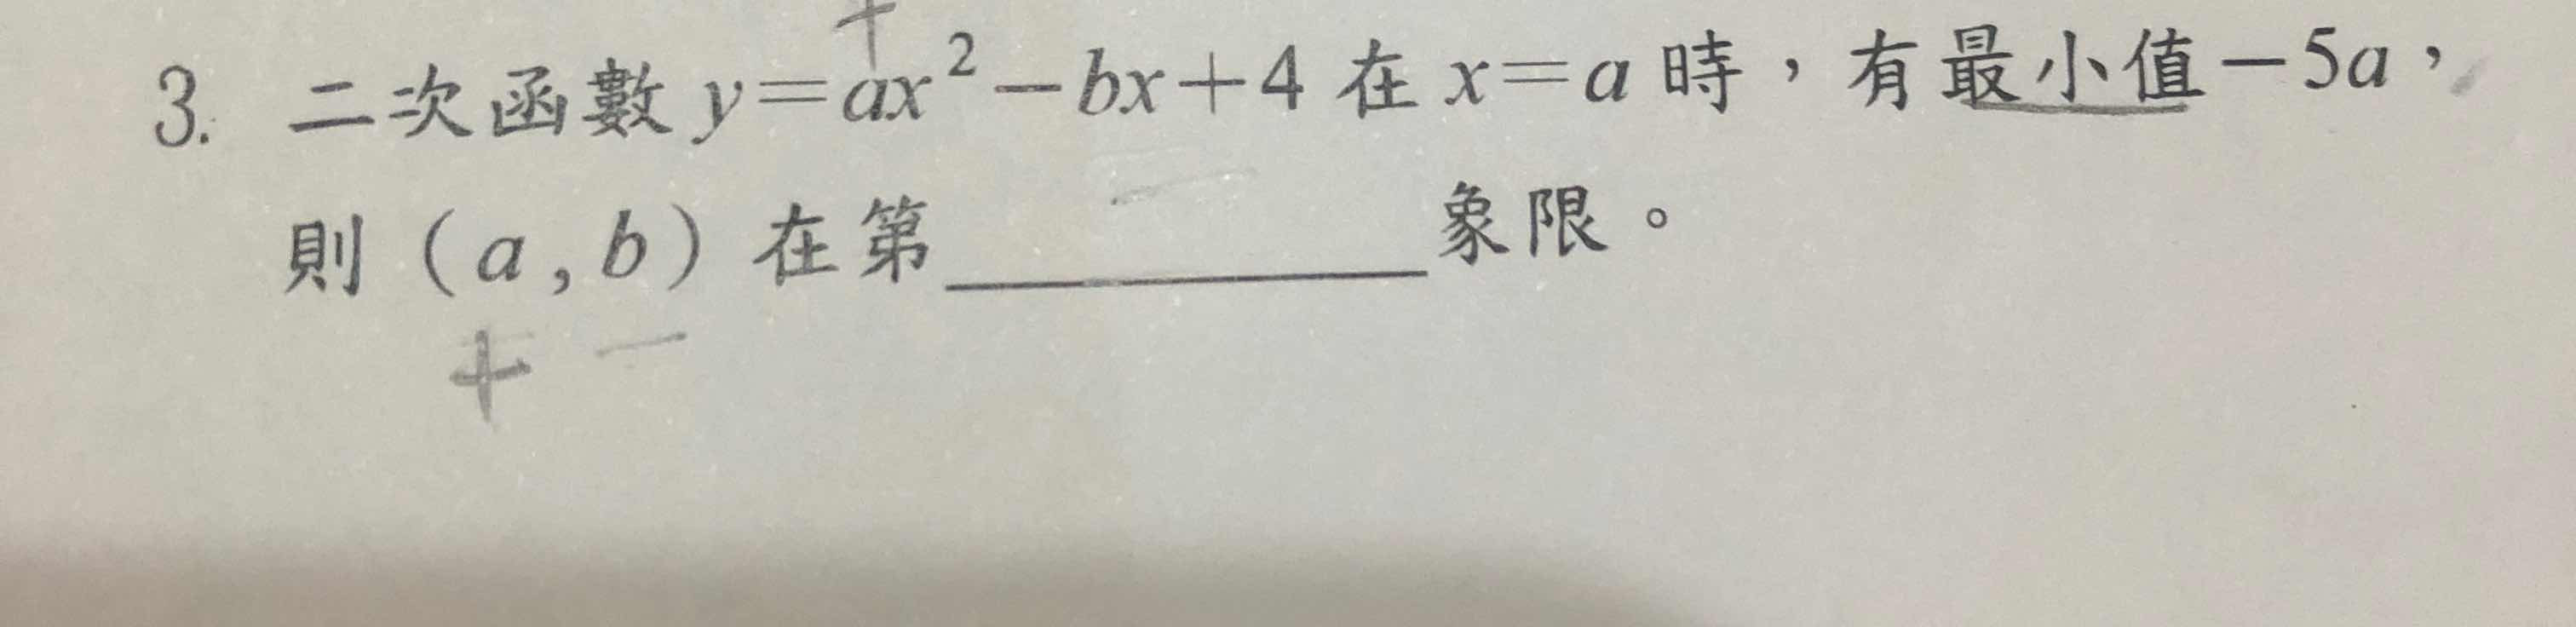 +
3. 二次函數 y=ax²-bx+4 在 x=a 時，有最小值-5a，
則（a,b）在第＿＿＿＿＿象限。
+ －